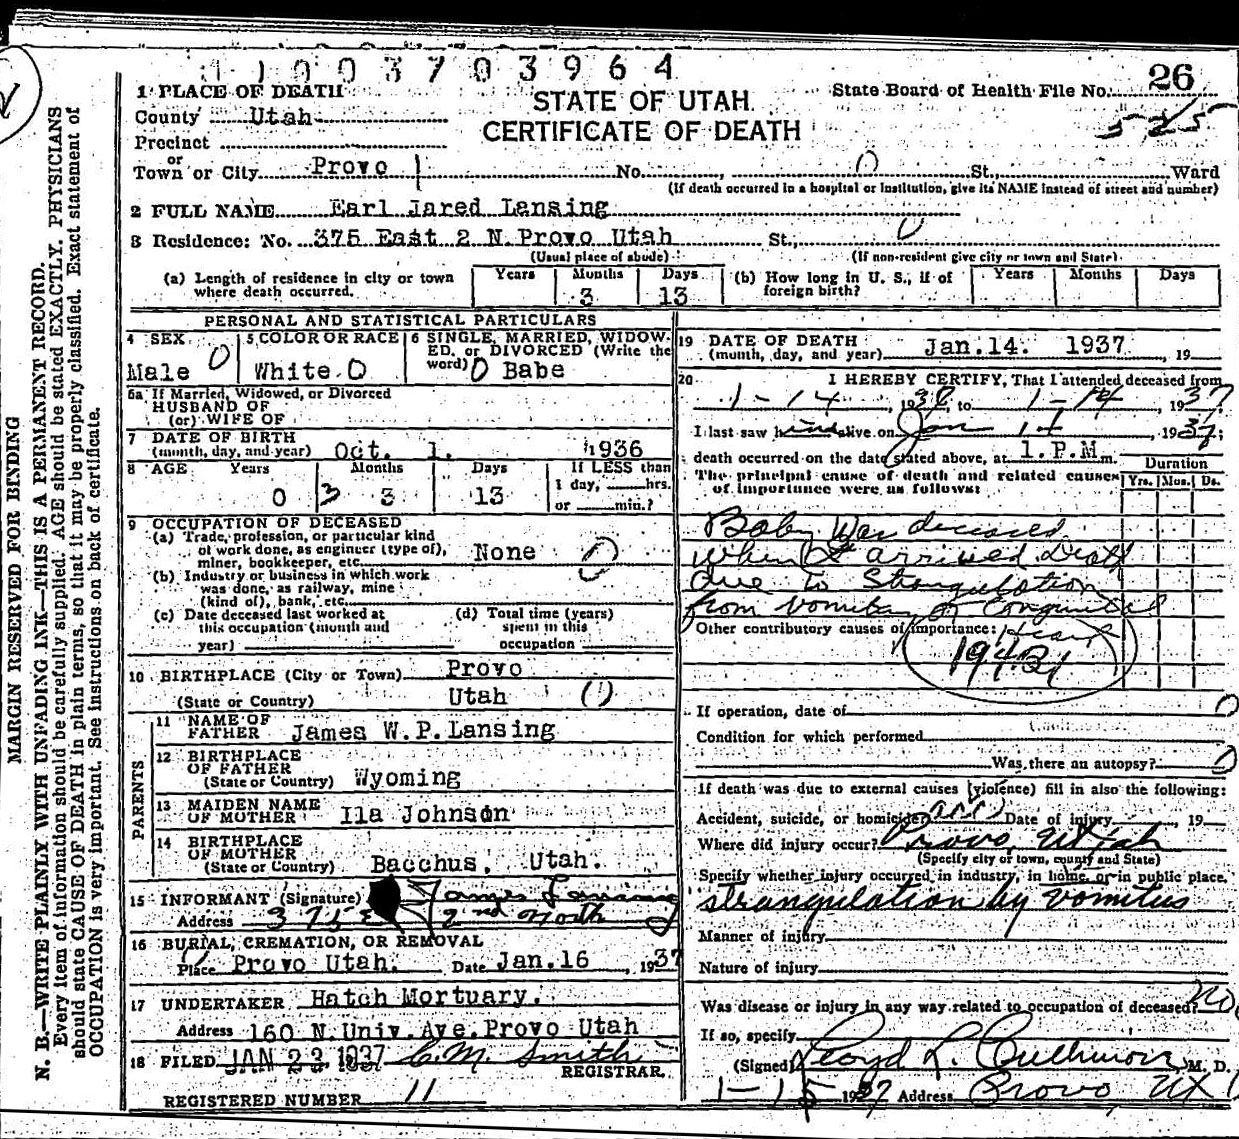 11003703964
1 PLACE OF DEATH
STATE OF UTAH
CERTIFICATE OF DEATH
State Board of Health File No. 26
525
County Utah
Precinct
or
Town or City Provo No. , 0 St., Ward
(If death occurred in a hospital or institution, give its NAME instead of street and number)
2 FULL NAME Earl Jared Lansing
3 Residence: No. 375 East 2 N. Provo Utah St., 0
(Usual place of abode) (If non-resident give city or town and State)
(a) Length of residence in city or town where death occurred. Years Months 3 Days 13
(b) How long in U. S., if of foreign birth? Years Months Days
PERSONAL AND STATISTICAL PARTICULARS
4 SEX Male 0
5 COLOR OR RACE White 0
6 SINGLE, MARRIED, WIDOWED, or DIVORCED (Write the word) 0 Babe
6a If Married, Widowed, or Divorced
HUSBAND OF
(or) WIFE OF
7 DATE OF BIRTH
(month, day, and year) Oct. 1. 1936
8 AGE Years Months Days If LESS than
0 3 3 13 1 day, hrs.
or min.?
9 OCCUPATION OF DECEASED
(a) Trade, profession, or particular kind
of work done, as engineer (type of),
miner, bookkeeper, etc. None 0
(b) Industry or business in which work
was done, as railway, mine
(kind of), bank, etc.
(c) Date deceased last worked at
this occupation (month and
year)
(d) Total time (years)
spent in this
occupation
10 BIRTHPLACE (City or Town) Provo
(State or Country) Utah 0
PARENTS
11 NAME OF
FATHER James W.P. Lansing
12 BIRTHPLACE
OF FATHER
(State or Country) Wyoming
13 MAIDEN NAME
OF MOTHER Ila Johnson
14 BIRTHPLACE
OF MOTHER
(State or Country) Bacchus, Utah.
15 INFORMANT (Signature) James Lansing
Address 375 E 2nd North
16 BURIAL, CREMATION, OR REMOVAL
Place Provo Utah. Date Jan.16, 1937
17 UNDERTAKER Hatch Mortuary.
Address 160 N.Univ.Ave.Provo Utah
18 FILED JAN 23 1937 C.M. Smith
REGISTRAR.
REGISTERED NUMBER 11
19 DATE OF DEATH
(month, day, and year) Jan.14. 1937, 19
20 I HEREBY CERTIFY, That I attended deceased from
1-14, 1937, to 1-14, 1937
I last saw him alive on Jan 14, 1937;
death occurred on the date stated above, at 1.P.M. m.
The principal cause of death and related causes
of importance were as follows:
Duration
Yrs. Mos. Ds.
Baby was deceased
when I arrived Death
due to Strangulation
from vomitus of Congenital
Heart
Other contributory causes of importance:
If operation, date of 0
Condition for which performed
Was there an autopsy? 0
If death was due to external causes (violence) fill in also the following:
Accident, suicide, or homicide? acc Date of injury , 19
Where did injury occur? Provo, Utah
(Specify city or town, county and State)
Specify whether injury occurred in industry, in home, or in public place.
strangulation by vomitus
Manner of injury
Nature of injury
Was disease or injury in any way related to occupation of deceased? No
If so, specify
(Signed) Lloyd L. Cullimore, M. D.
1-15 1937 Address Provo, Ut
MARGIN RESERVED FOR BINDING
N. B.—WRITE PLAINLY WITH UNFADING INK—THIS IS A PERMANENT RECORD.
Every item of information should be carefully supplied. AGE should be stated EXACTLY. PHYSICIANS
should state CAUSE OF DEATH in plain terms, so that it may be properly classified. Exact statement of
OCCUPATION is very important. See instructions on back of certificate.